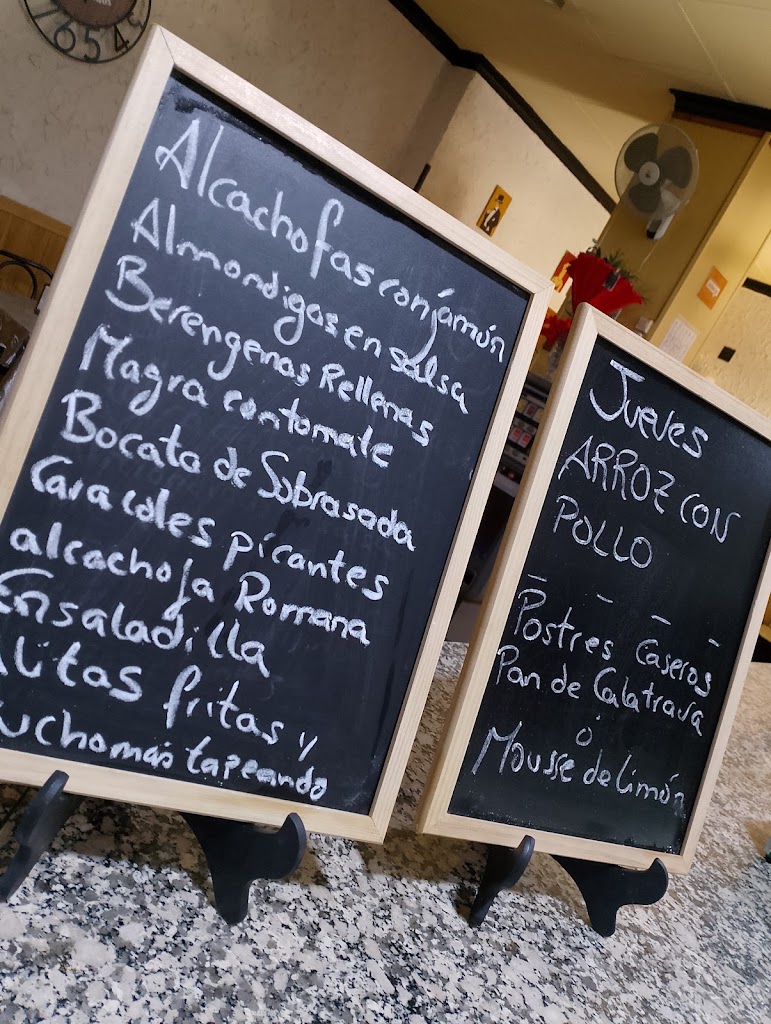 Alcachofas con jamón
Almondigas en salsa
Berengenas Rellenas
Magra con tomate
Bocata de Sobrasada
Caracoles picantes
alcachofa Romana
Ensaladilla
Alitas fritas y
mucho más tapeando
Jueves
ARROZ CON
POLLO
Postres Caseros
Pan de Calatrava
ó
Mousse de limón
6 5 4